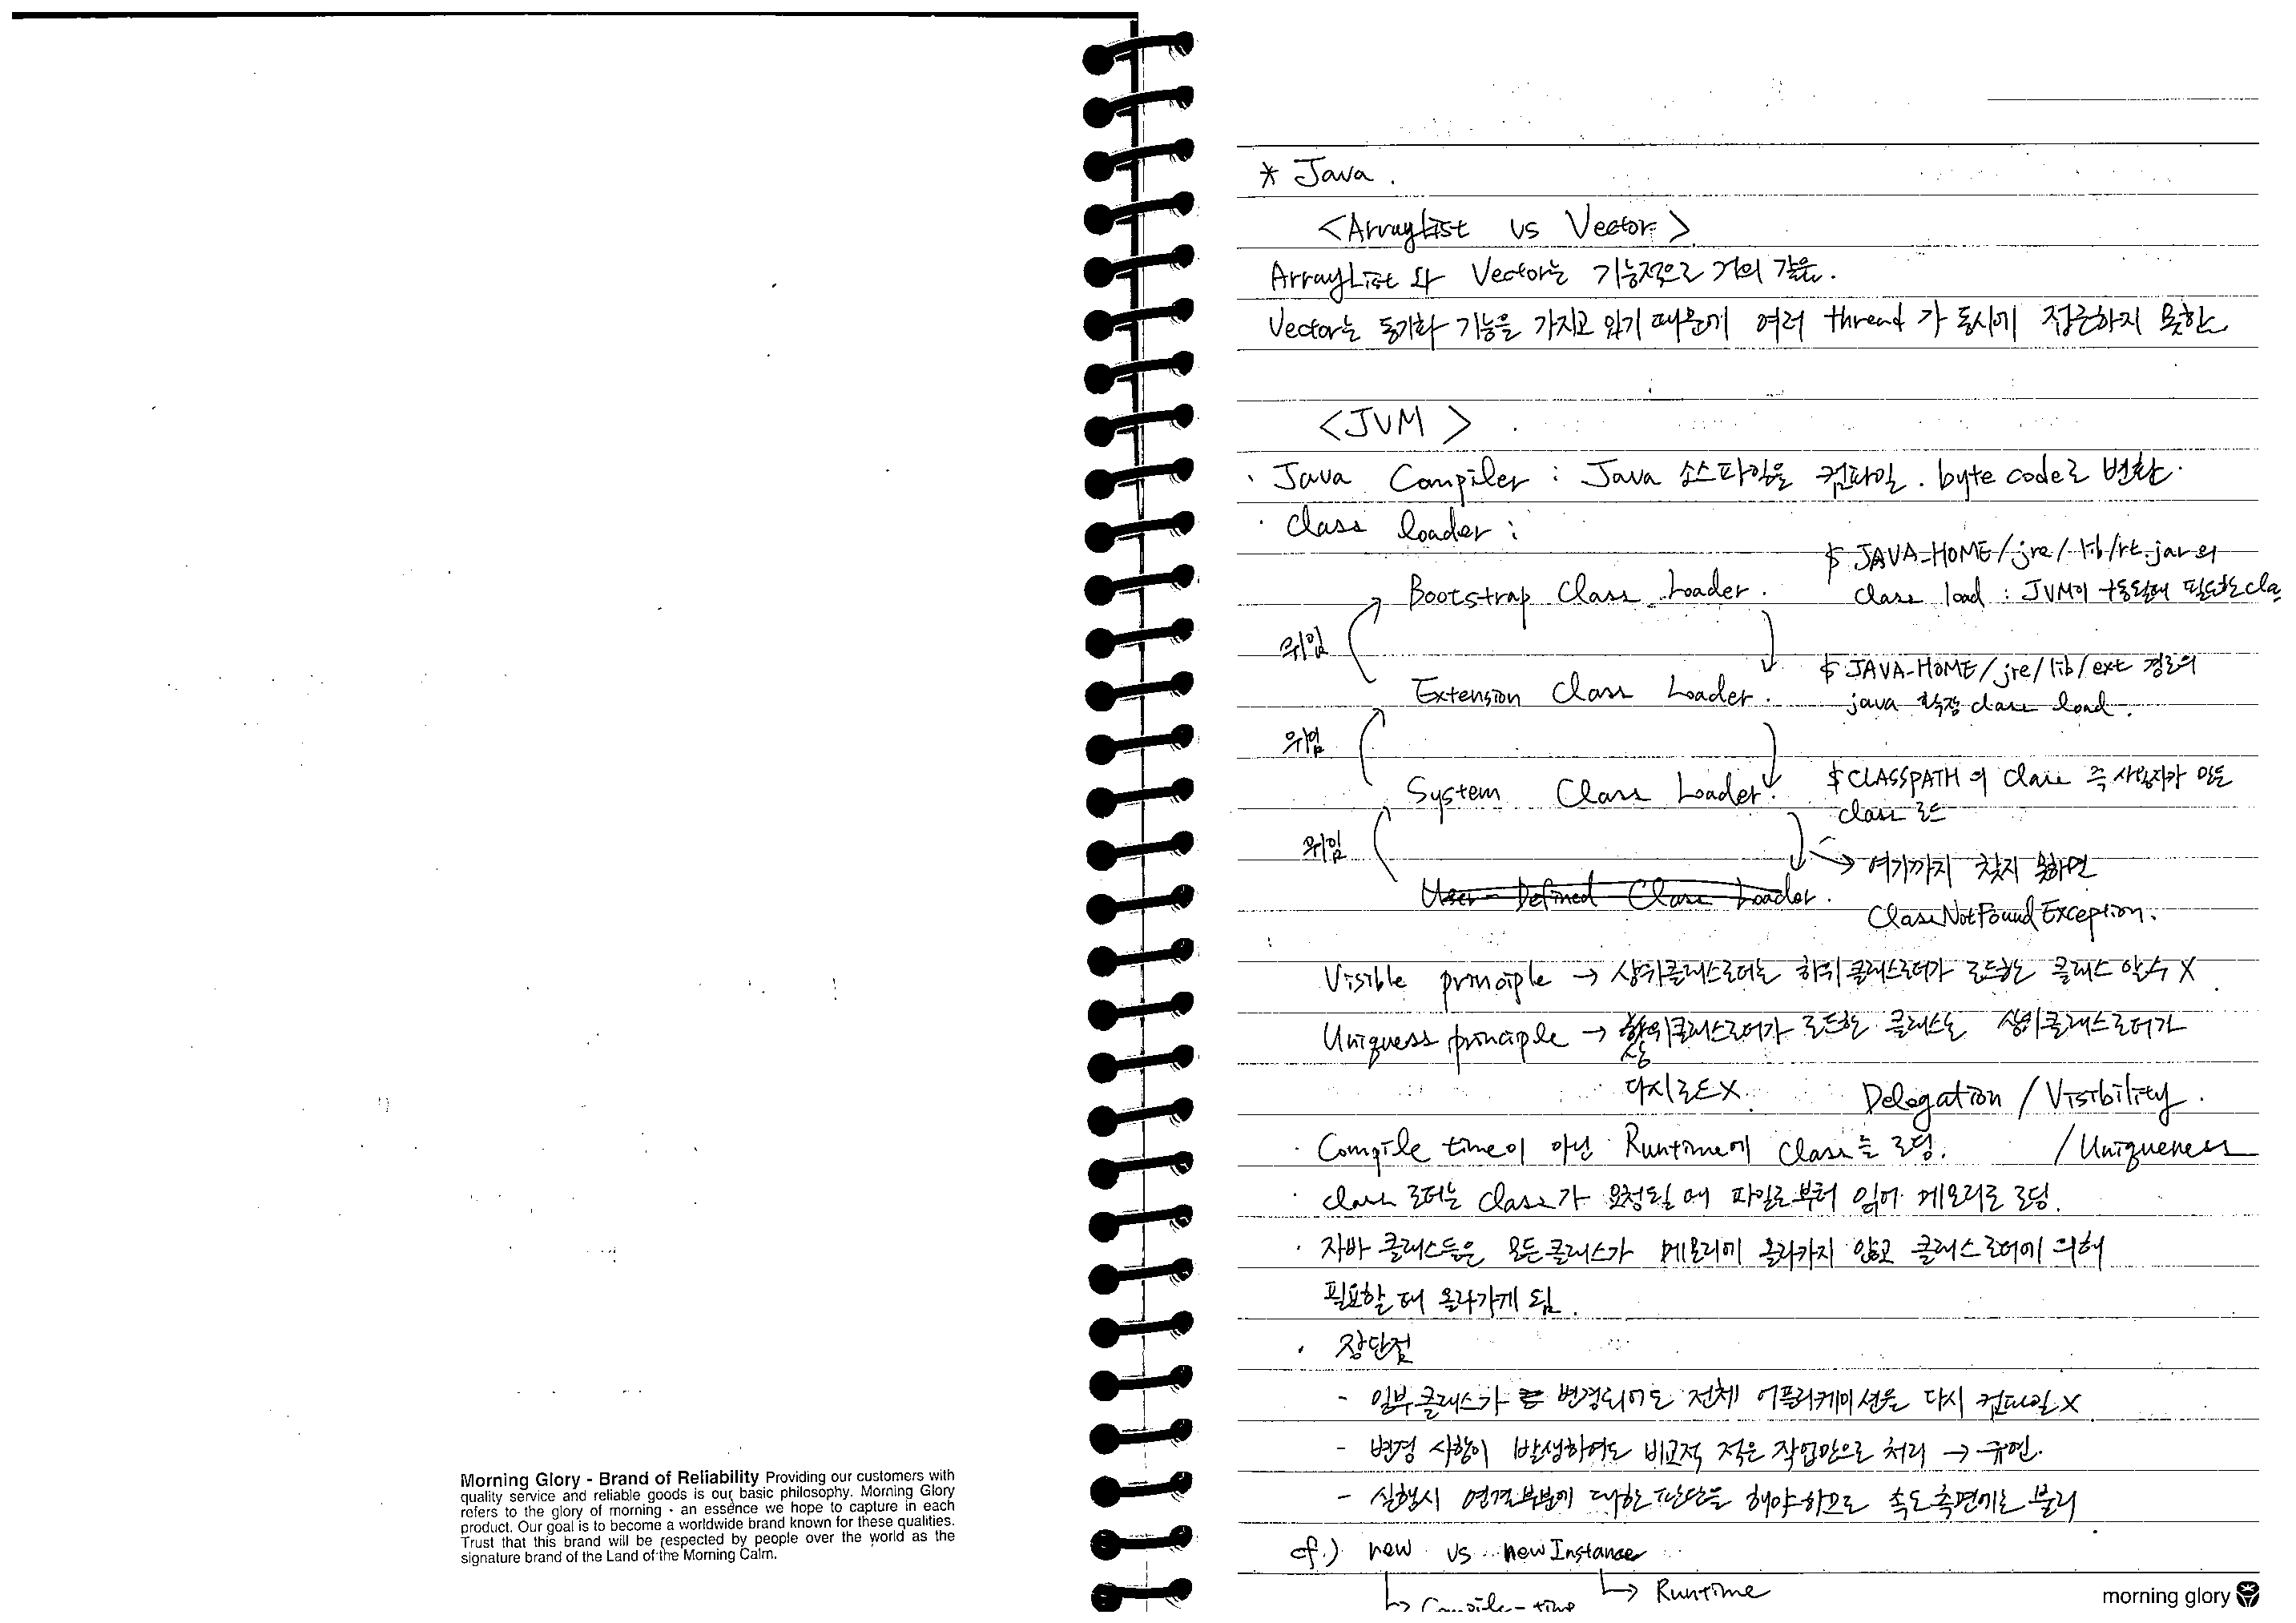 Morning Glory - Brand of Reliability Providing our customers with
quality service and reliable goods is our basic philosophy. Morning Glory
refers to the glory of morning - an essence we hope to capture in each
product. Our goal is to become a worldwide brand known for these qualities.
Trust that this brand will be respected by people over the world as the
signature brand of the Land of the Morning Calm.
* Java.
<ArrayList vs Vector>
ArrayList 와 Vector는 기능적으로 거의 같음.
Vector는 동기화 기능을 가지고 있기 때문에 여러 thread 가 동시에 접근하지 못한
<JVM>
· Java Compiler : Java 소스파일을 컴파일. byte code로 변환.
· class loader :
$ JAVA_HOME/jre/lib/rt.jar의
Bootstrap Class Loader.
class load : JVM이 구동될때 필요한 cla
위임
$ JAVA_HOME/jre/lib/ext 경로의
Extension Class Loader.
java 확장 class load.
위임
$ CLASSPATH 의 class 즉 사용자가 만든
System Class Loader.
class 로드
위임
→ 여기까지 찾지 못하면
User-Defined Class Loader.
ClassNotFoundException.
Visible principle → 상위클래스로더는 하위클래스로더가 로드한 클래스 알수 X
Uniquess principle → 하위클래스로더가 로드한 클래스는 상위클래스로더가
상
다시로드X
Delegation / Visibility.
· Compile time이 아닌 Runtime에 Class를 로딩.
/ Uniqueness
· class 로더는 class가 요청될 때 파일로부터 읽어 메모리로 로딩.
· 자바 클래스들은 모든클래스가 메모리에 올라가지 않고 클래스로더에 의해
필요할 때 올라가게 됨.
· 장단점
- 일부클래스가 변경되어도 전체 어플리케이션을 다시 컴파일X
- 변경 사항이 발생하여도 비교적 적은 작업만으로 처리 → 유연.
- 실행시 연결부분에 대한 판단을 해야하므로 속도측면에는 불리
cf.) new vs newInstance
↳ Runtime
↳ Compile-time
morning glory